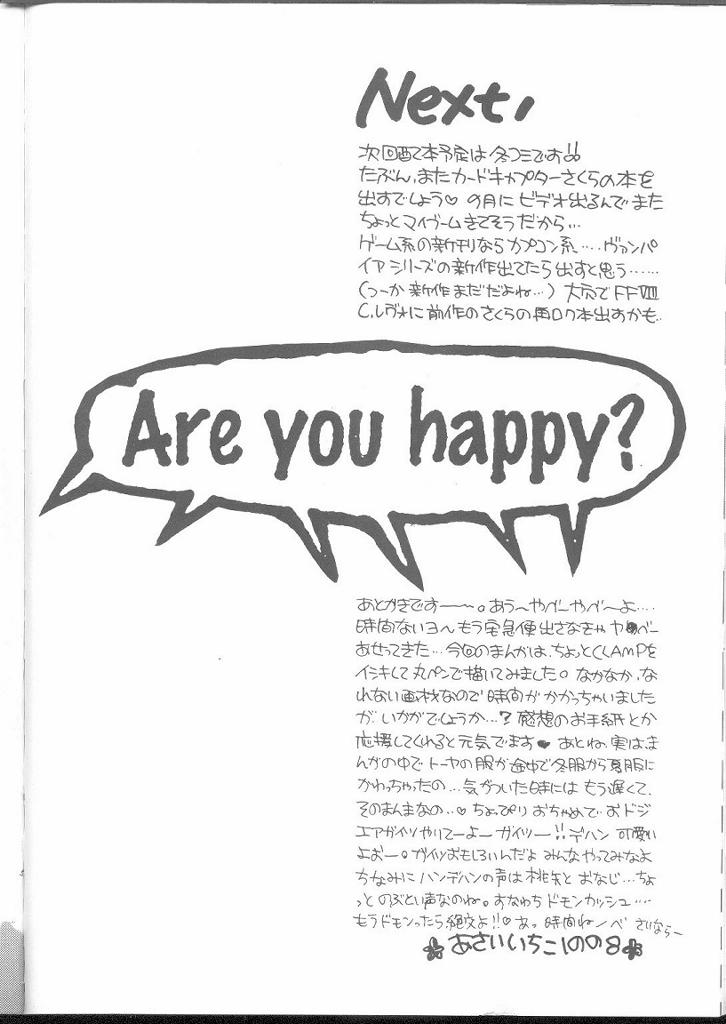 Next,
次回配本予定は冬コミです!!
たぶん、またカードキャプターさくらの本を
出すでしょう♡ の月にビデオ出るんでまた
ちょっとマイブームきてそうだから…
ゲーム系の新刊ならカプコン系……ヴァンパ
イアシリーズの新作出てたら出すと思う……
(つーか新作まだだよね…) 大穴でFFVIII
C.レヴォに前作のさくらの再ロク本出すかも..
Are you happy?
あとがきですー〜。あう〜やべーやべーよ….
時間ないヨ〜もう宅急便出さなきゃヤベー
あせってきた…今回のまんがは、ちょっとCLAMPを
イシキして丸ペンで描いてみました。なかなか、な
れない画材なので時間がかかっちゃいました
が、いかがでしょうか…?感想のお手紙とか
応援してくれると元気でます♥ あとね、実は、ま
んがの中でトーヤの服が途中で冬服から夏服に
かわっちゃったの…気がついた時にはもう遅くて、
そのまんまなの…♡ ちょっぴりおちゃめでおドジ
エアガイツやりてーよーガイツー!!デハン可愛い
よおー。ガイツおもしろいんだよみんなやってみなよ
ちなみにハンデハンの声は桃矢とおなじ…ちょ
っとのぶとい声なのね。すなわちドモンカッシュ….
もうドモンったら絶交よ!!♡ あっ時間ねーべ さいならー
あさいいちこ1998